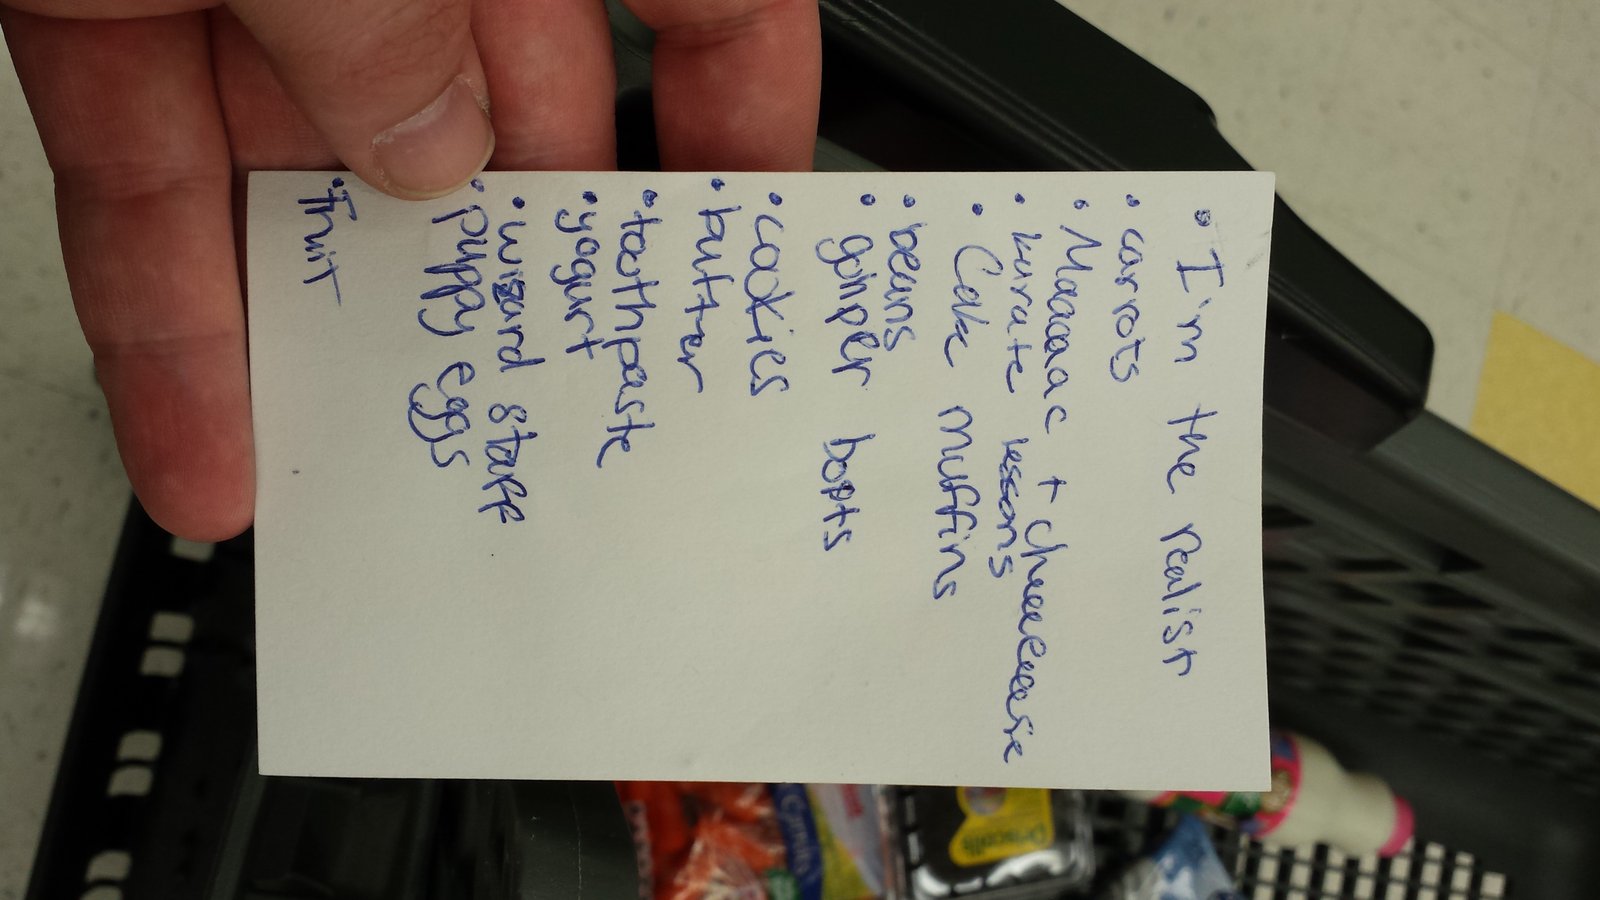 • I'm the realist
• carrots
• Maaaaac + cheeeeeeasie
• kurate lessons
• Cake muffins
• beans
• gomper boots
• cookies
• butter
• toothpaste
• yogurt
• wizard staff
• puppy eggs
• Fruit
Driscoll's